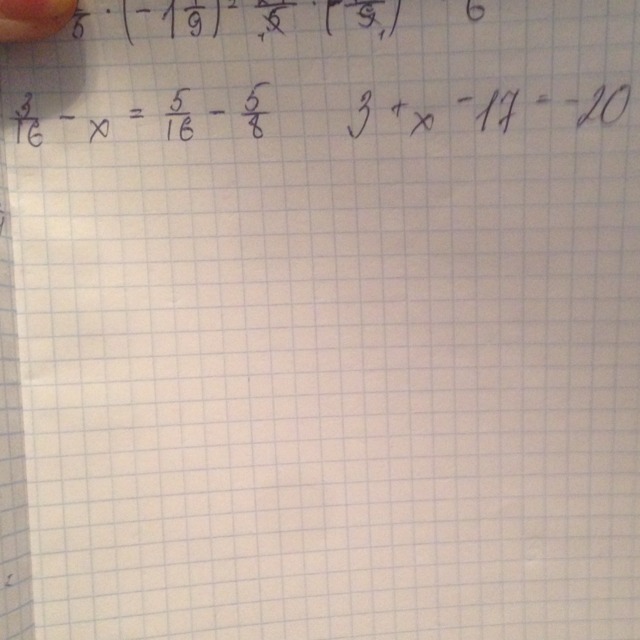 · (-1 1/9) =
3/16 - x = 5/16 - 5/8    3 + x - 17 = -20